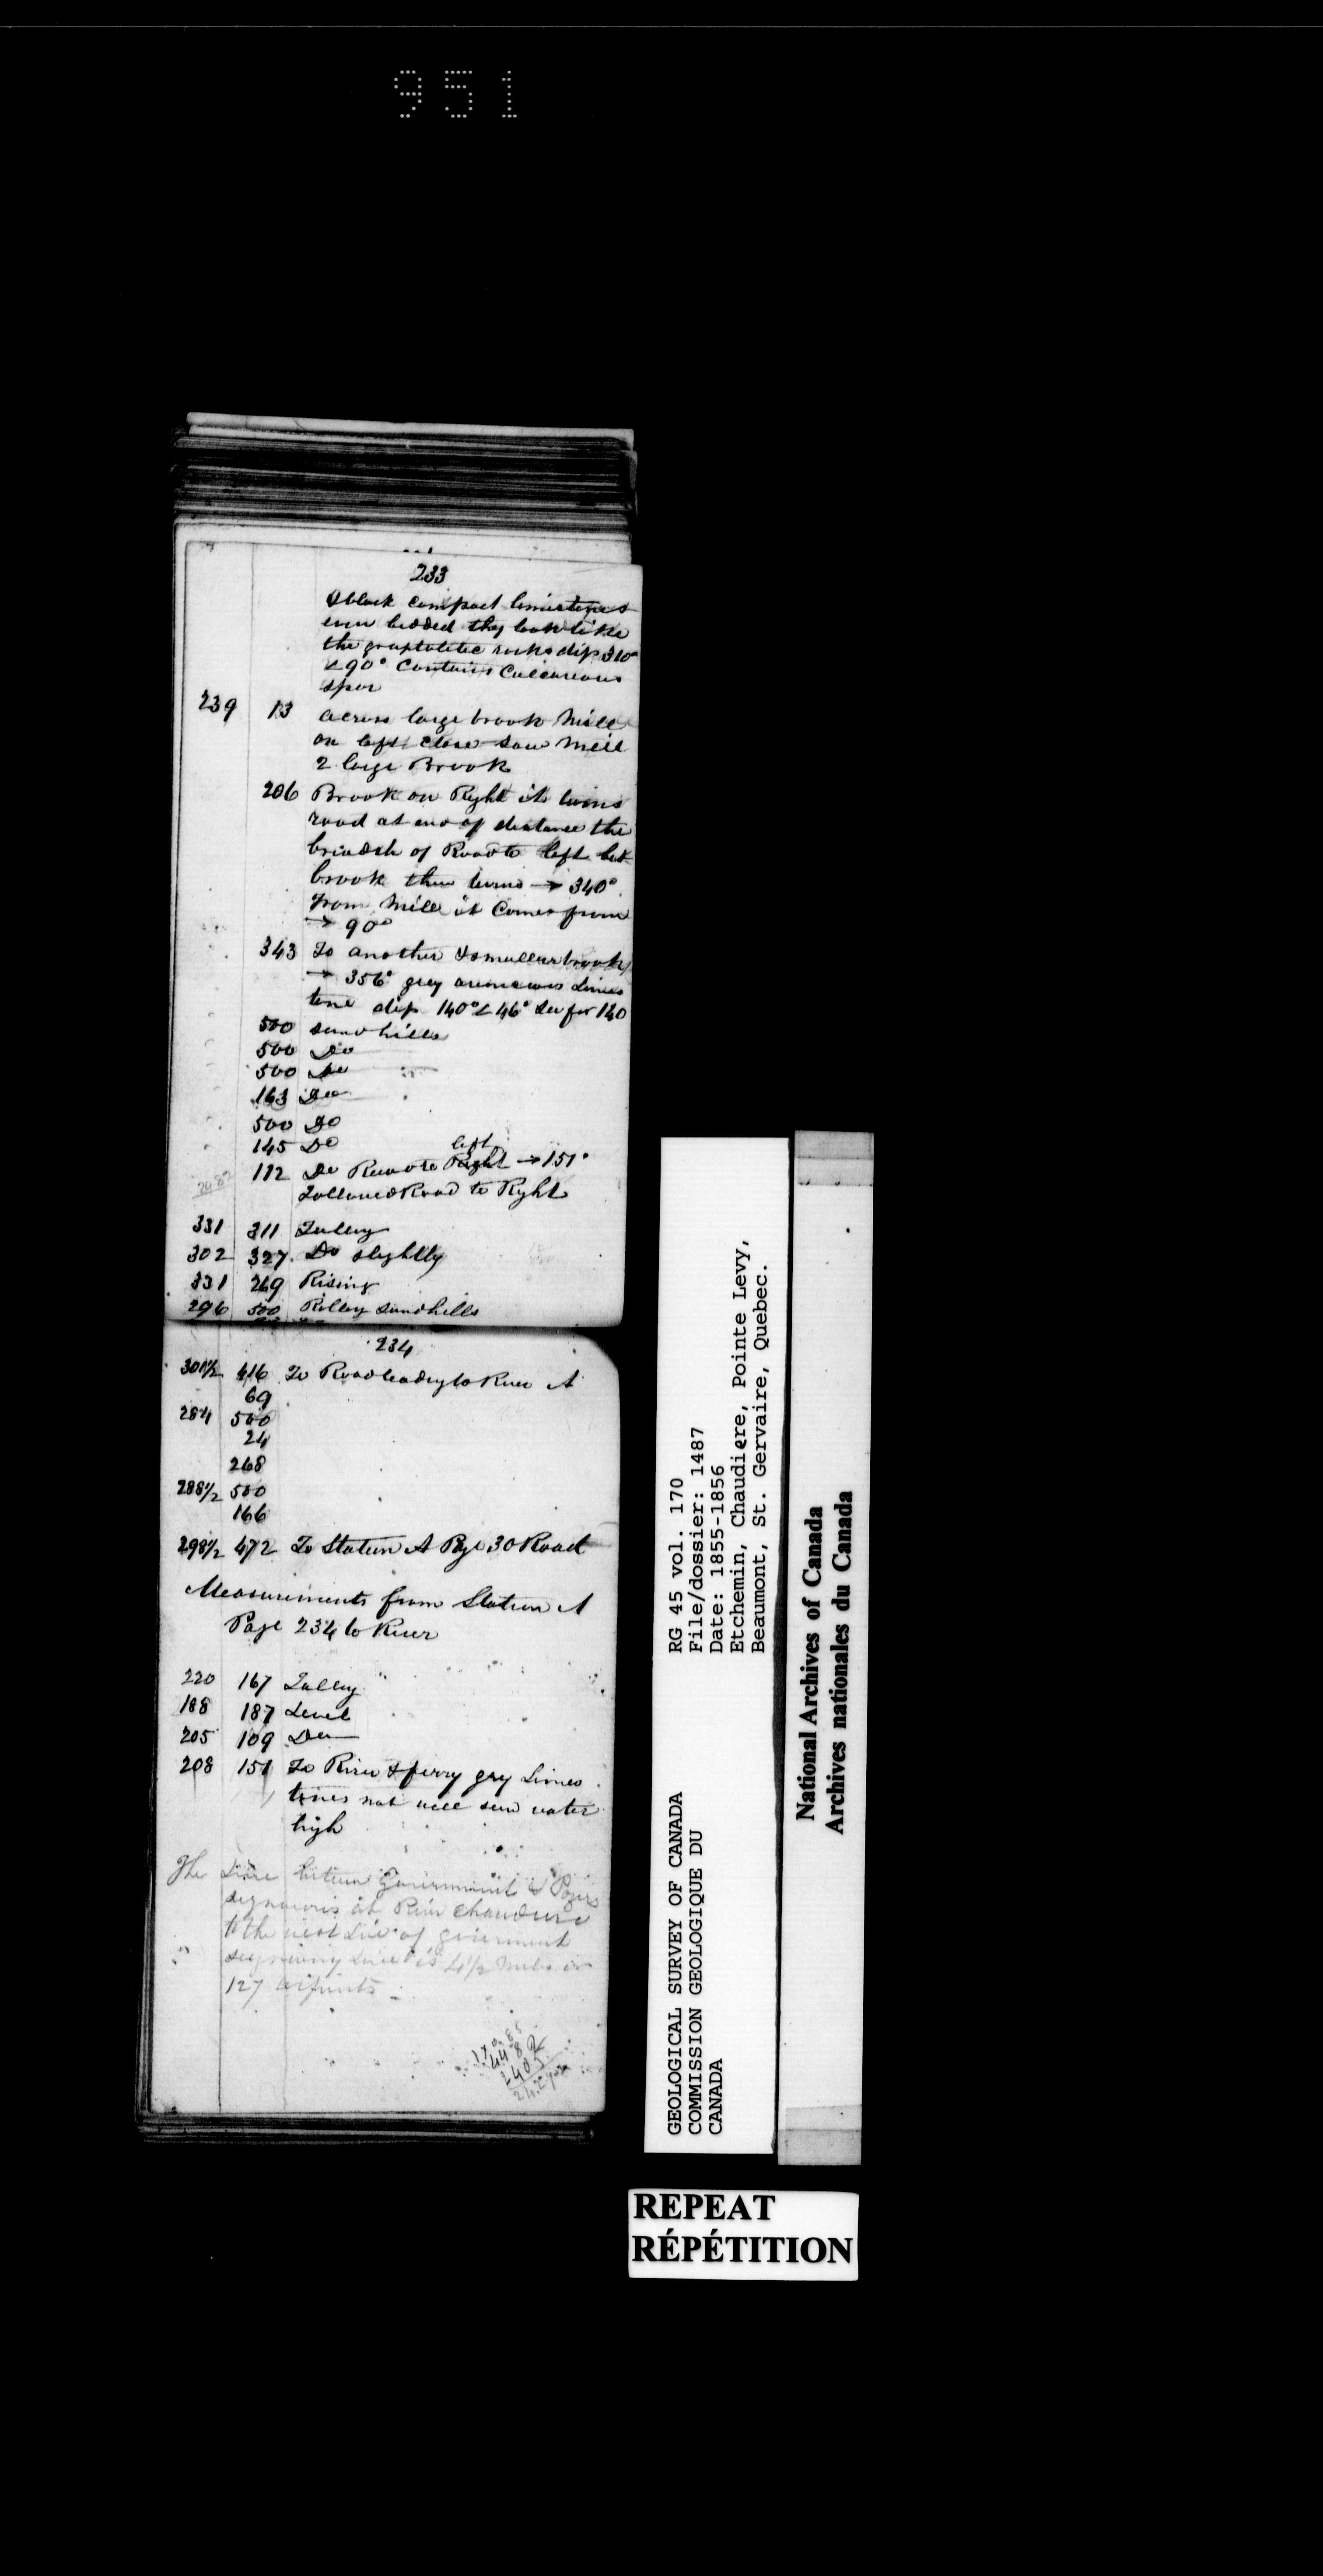 951
233
& black compact limestones
even bedded they look like
the graptolitic rocks dip 310°
< 90° Contains Calcareous
spar
239 13 across large brook Mill
on left close Saw Mill
2 large Brook
206 Brook on Right it turns
road at end of distance the
breadth of Road to left but
brook then turns → 340°
From Mill it Comes from
→ 90°
343 To another & smaller brook
→ 356° grey arenaceous Limes
tone dip 140° < 46° See for 140
500 sand hills
500 Do
500 Do
163 Do
500 Do
145 Do
left
112 Do Road to Right → 151°
Followed Road to Right
331 311 Falling
302 327 Do slightly
331 269 Rising
296 500 Rolley sandhills
234
301½ 416 To Road leading to River A
69
284 500
24
268
288½ 500
166
298½ 472 To Station A Page 30 Road
Measurements from Station A
Page 234 to River
220 167 Falling
188 187 Level
205 109 Do
208 151 To River & ferry grey Limes
tones not well seen water
high
The Line between Government &
at River Chaudiere
to the next Line of government
Line is 4½ miles or
127 arpents
RG 45 vol. 170
File/dossier: 1487
Date: 1855-1856
Etchemin, Chaudiere, Pointe Levy,
Beaumont, St. Gervaire, Quebec.
GEOLOGICAL SURVEY OF CANADA
COMMISSION GEOLOGIQUE DU
CANADA
National Archives of Canada
Archives nationales du Canada
REPEAT
RÉPÉTITION